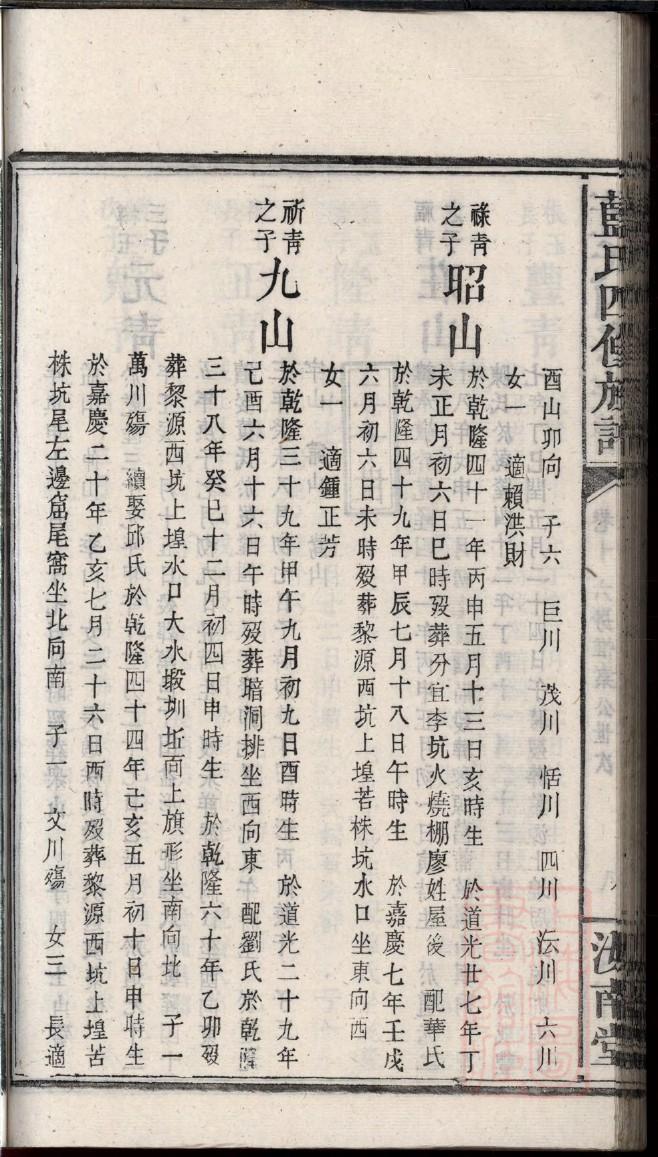 藍氏四修族譜
汝南堂
酉山卯向　子六　巨川　茂川　恬川　四川　沄川　六川
女一　適賴洪財
祿青之子　昭山
於乾隆四十一年丙申五月十三日亥時生　於道光廿七年丁
未正月初六日巳時歿葬分宜李坑火燒棚廖姓屋後　配華氏
於乾隆四十九年甲辰七月十八日午時生　於嘉慶七年壬戌
六月初六日未時歿葬黎源西坑上堭苦株坑水口坐東向西
女一　適鍾正芳
祈青之子　九山
於乾隆三十九年甲午九月初九日酉時生　於道光二十九年
己酉六月十六日午時歿葬暗洞排坐西向東　配劉氏於乾隆
三十八年癸巳十二月初四日申時生　於乾隆六十年乙卯歿
葬黎源西坑上堭水口大水塅圳坵面上旗形坐南向北　子一
萬川殤　續娶邱氏於乾隆四十四年己亥五月初十日申時生
於嘉慶二十年乙亥七月二十六日酉時歿葬黎源西坑上堭苦
株坑尾左邊窩尾窩坐北向南　子一　文川殤　女三　長適